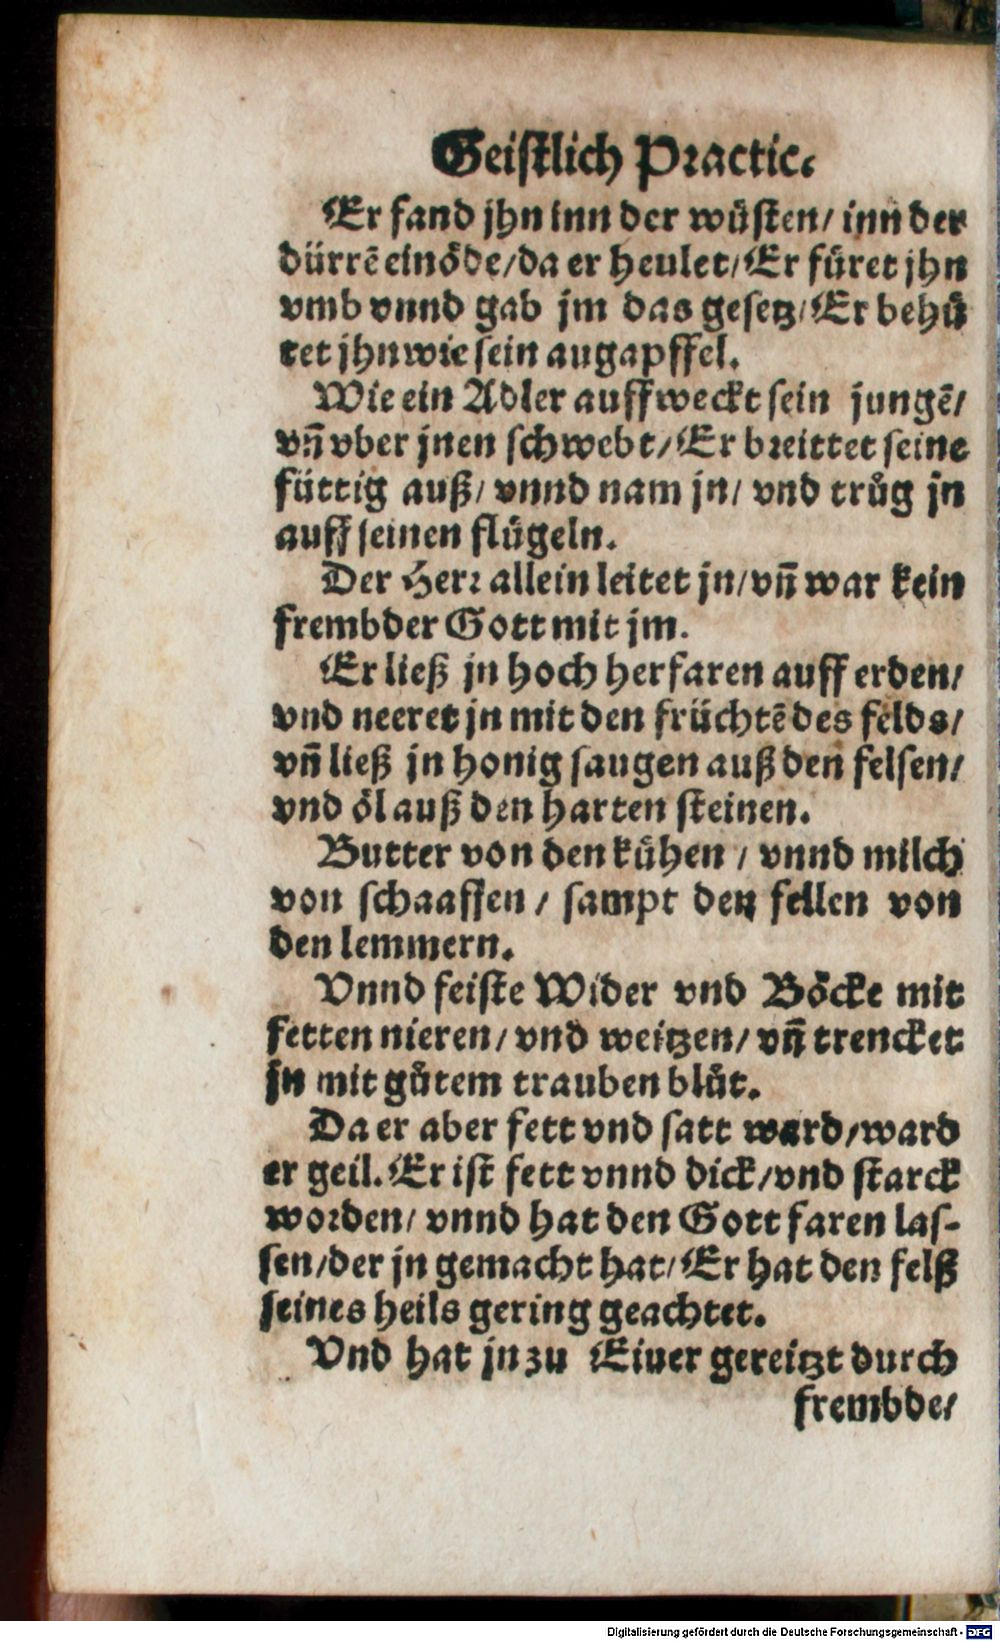 Geistlich Practic.
Er fand jhn inn der wuͤsten/ inn der
duͤrrē einoͤde/da er heulet/Er fuͤret jhn
vmb vnnd gab jm das gesetz/Er behuͤ
tet jhn wie sein augapffel.
Wie ein Adler auffweckt sein jungē/
vn̄ vber jnen schwebt/Er breittet seine
fuͤttig auß/ vnnd nam jn/ vnd truͦg jn
auff seinen fluͤgeln.
Der Herr allein leitet jn/vn̄ war kein
frembder Gott mit jm.
Er ließ jn hoch herfaren auff erden/
vnd neeret jn mit den fruͤchtē des felds/
vn̄ ließ jn honig saugen auß den felsen/
vnd oͤl auß den harten steinen.
Butter von den kuͤhen / vnnd milch
von schaaffen / sampt den fellen von
den lemmern.
Vnnd feiste Wider vnd Boͤcke mit
fetten nieren/ vnd weitzen/ vn̄ trencket
jn mit guͦtem trauben bluͦt.
Da er aber fett vnd satt ward/ward
er geil. Er ist fett vnnd dick/vnd starck
worden/ vnnd hat den Gott faren las-
sen/der jn gemacht hat/Er hat den felß
seines heils gering geachtet.
Vnd hat jn zu Eiuer gereitzt durch
frembde/
Digitalisierung gefördert durch die Deutsche Forschungsgemeinschaft - DFG